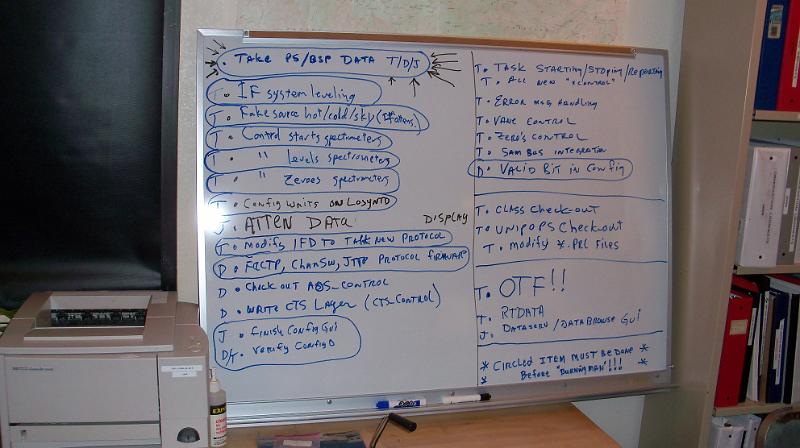 • TAKE PS/BSP DATA T/D/J
T • IF system leveling
T • Fake source hot/cold/sky (IF attens.)
T • Control starts spectrometers
T • " levels spectrometers
T • " Zeroes spectrometers
T • Config waits on LOSYNTD
J • ATTEN DATA DISPLAY
T • Modify IFD to Talk new Protocol
D • , ChanSW, Protocol firmware
D • CHECK OUT ADS_CONTROL
D • WRITE CTS Layer (CTS_CONTROL)
J • finish Config Gui
D/J • verify Config D
T • TASK STARTING/STOPING/REPORTING
T • ALL NEW "XCONTROL"
T • ERROR MSG HANDLING
T • VANE CONTROL
T • ZERO'S CONTROL
T • SAM BUS INTEGRATION
D • VALID BIT IN Config
T • CLASS Check-out
T • UNIPOPS Checkout
T • modify *.PRC Files
T • OTF!!
T • RTDATA
J • DATASERV/DATABROWSE Gui
* CIRCLED ITEM MUST BE DONE *
* Before "BURNINGMAN"!!! *